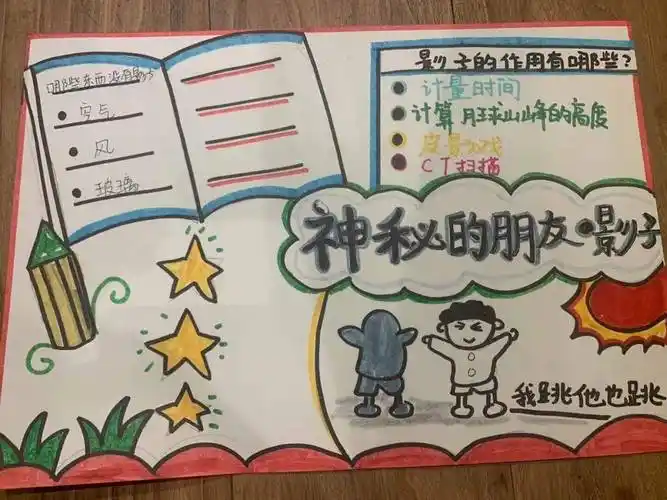 哪些东西没有影子
空气
风
玻璃
影子的作用有哪些?
计量时间
计算月球山峰的高度
皮影游戏
CT扫描
神秘的朋友·影子
我跳他也跳